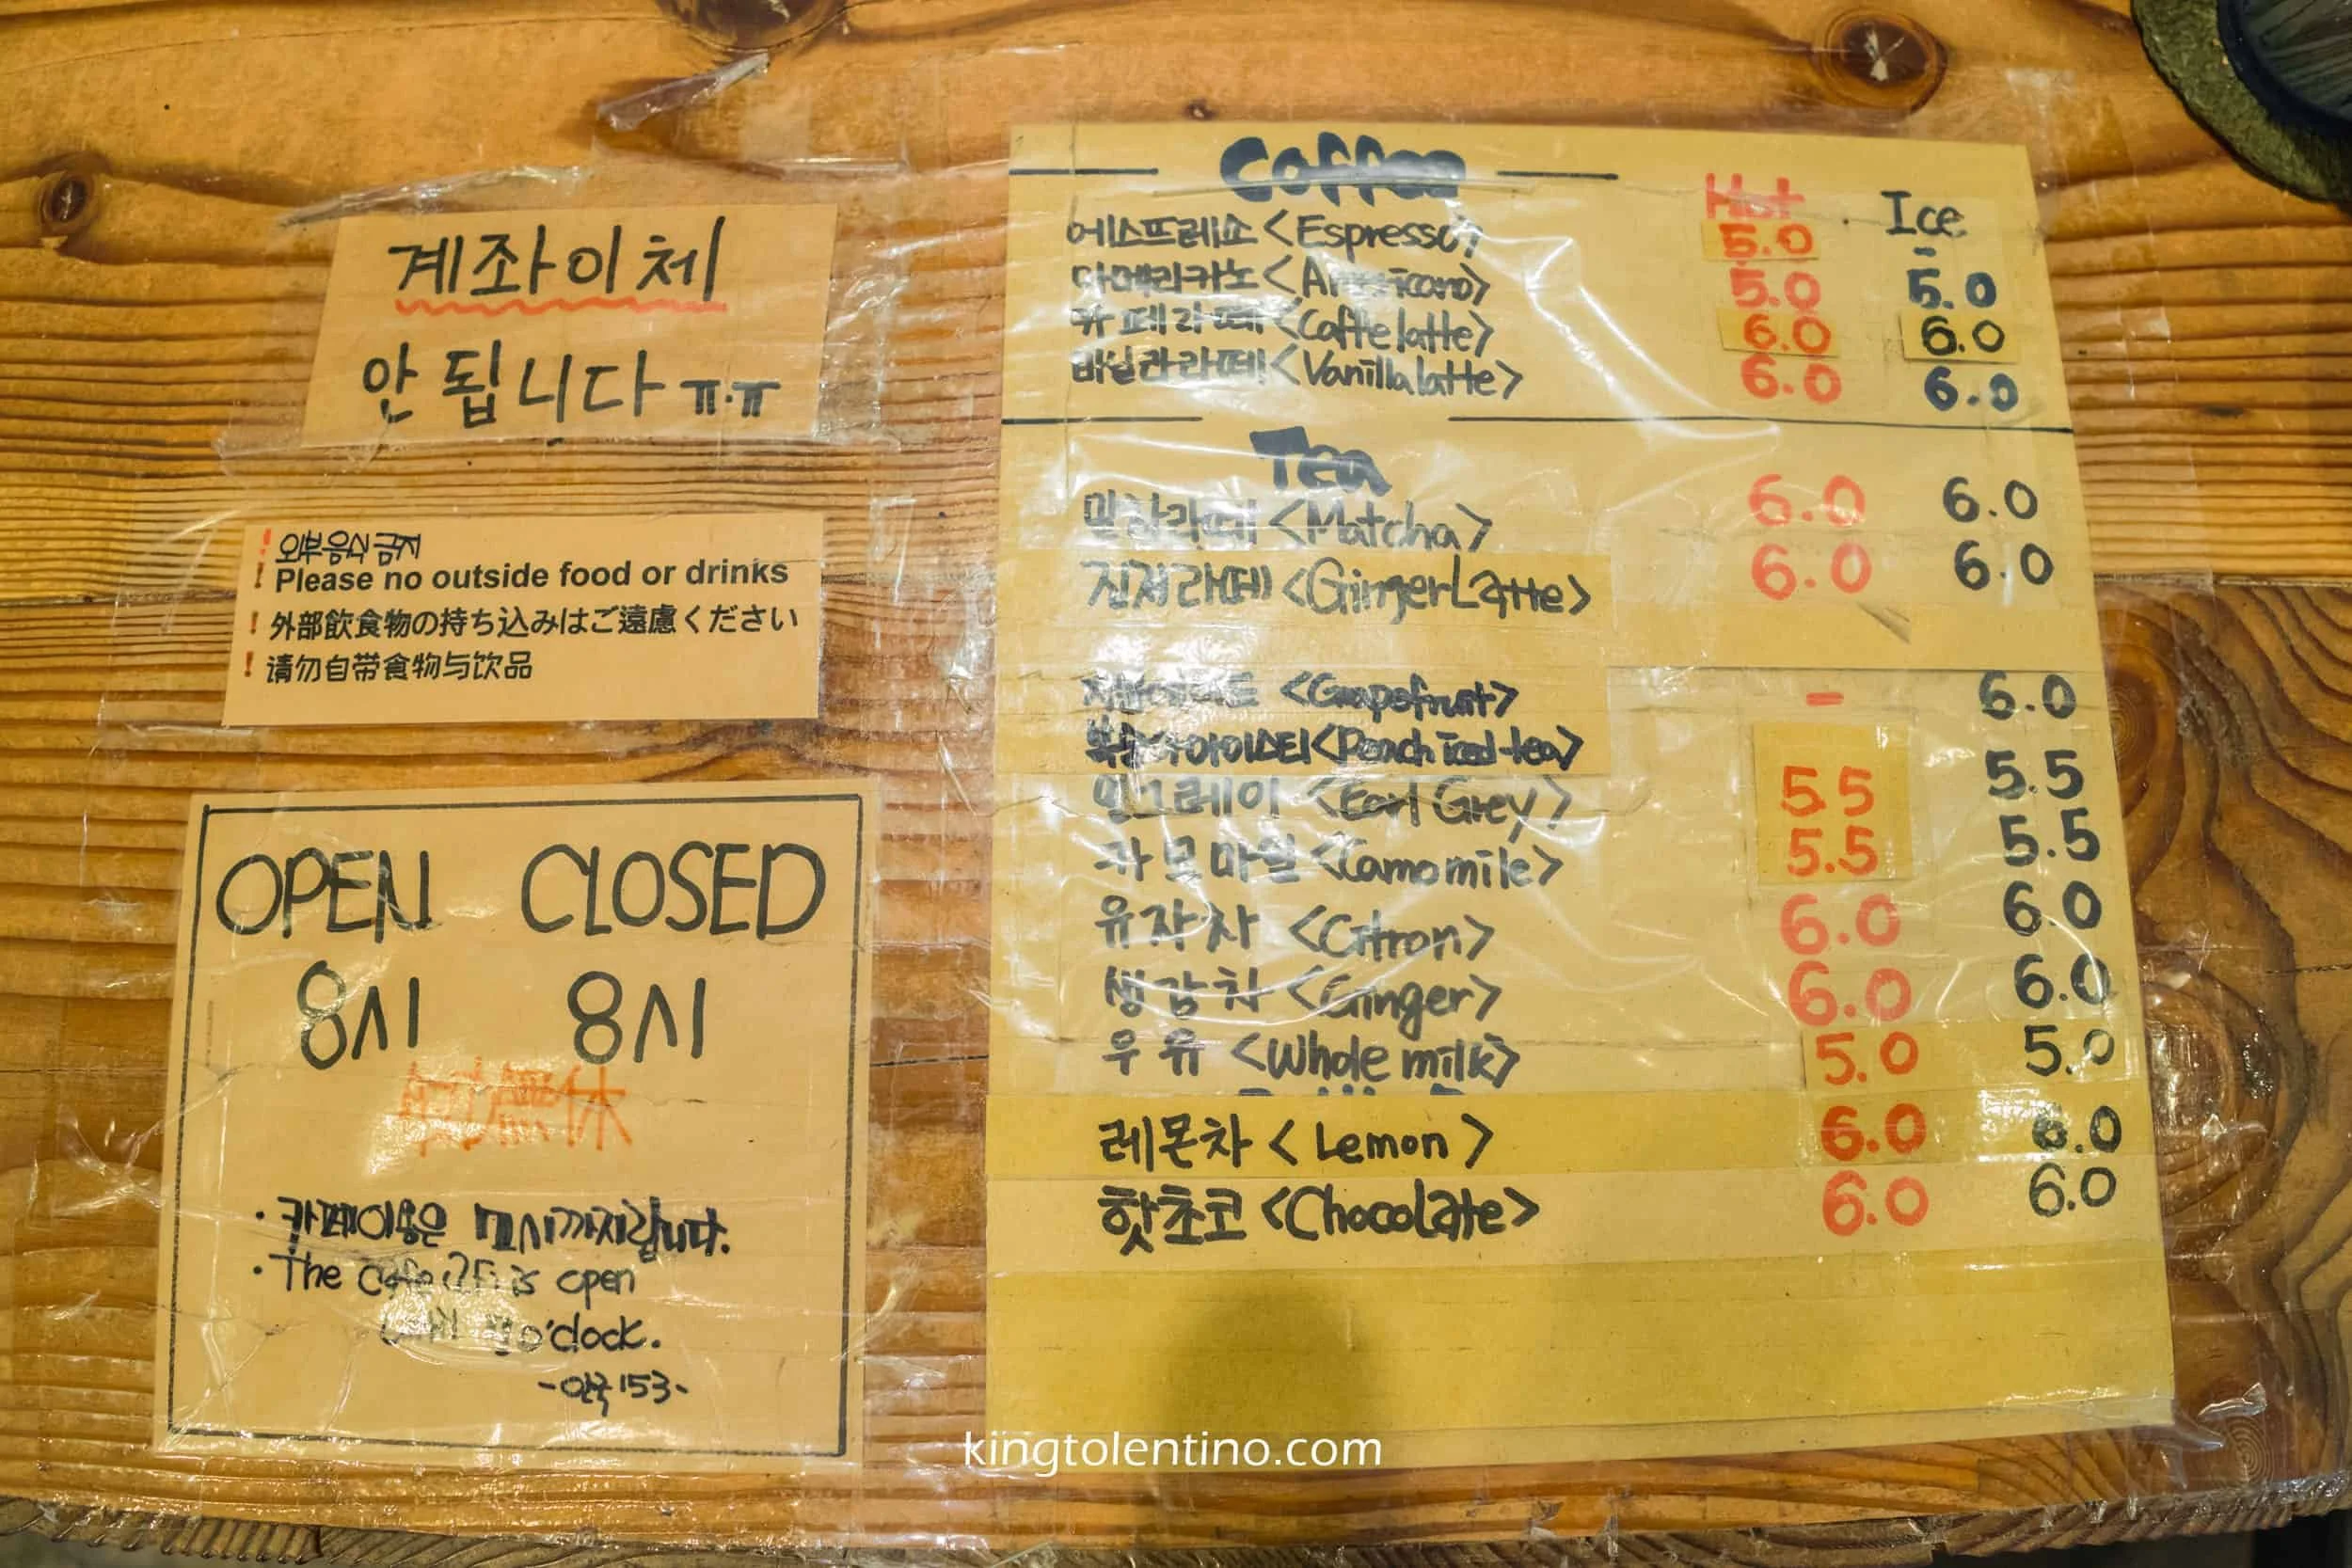 계좌이체
안됩니다 ㅠ.ㅠ
! 외부음식 금지
! Please no outside food or drinks
! 外部飲食物の持ち込みはご遠慮ください
! 请勿自带食物与饮品
OPEN CLOSED
8시 8시
年中無休
· 카페이용은 까지랍니다.
· The Cafe 2F is open
o'clock.
-안국153-
Coffee
Hot Ice
에스프레소 <Espresso> 5.0 -
아메리카노 <Americano> 5.0 5.0
카페라떼 <Caffe latte> 6.0 6.0
바닐라라떼 <Vanilla latte> 6.0 6.0
Tea
말차라떼 <Matcha> 6.0 6.0
진저라떼 <Ginger Latte> 6.0 6.0
자몽에이드 <Grapefruit> - 6.0
복숭아아이스티 <Peach iced tea> 5.5
얼그레이 <Earl Grey> 5.5 5.5
카모마일 <Camomile> 5.5
유자차 <Citron> 6.0 6.0
생강차 <Ginger> 6.0 6.0
우유 <Whole milk> 5.0 5.0
레몬차 < Lemon > 6.0 6.0
핫초코 <Chocolate> 6.0 6.0
kingtolentino.com